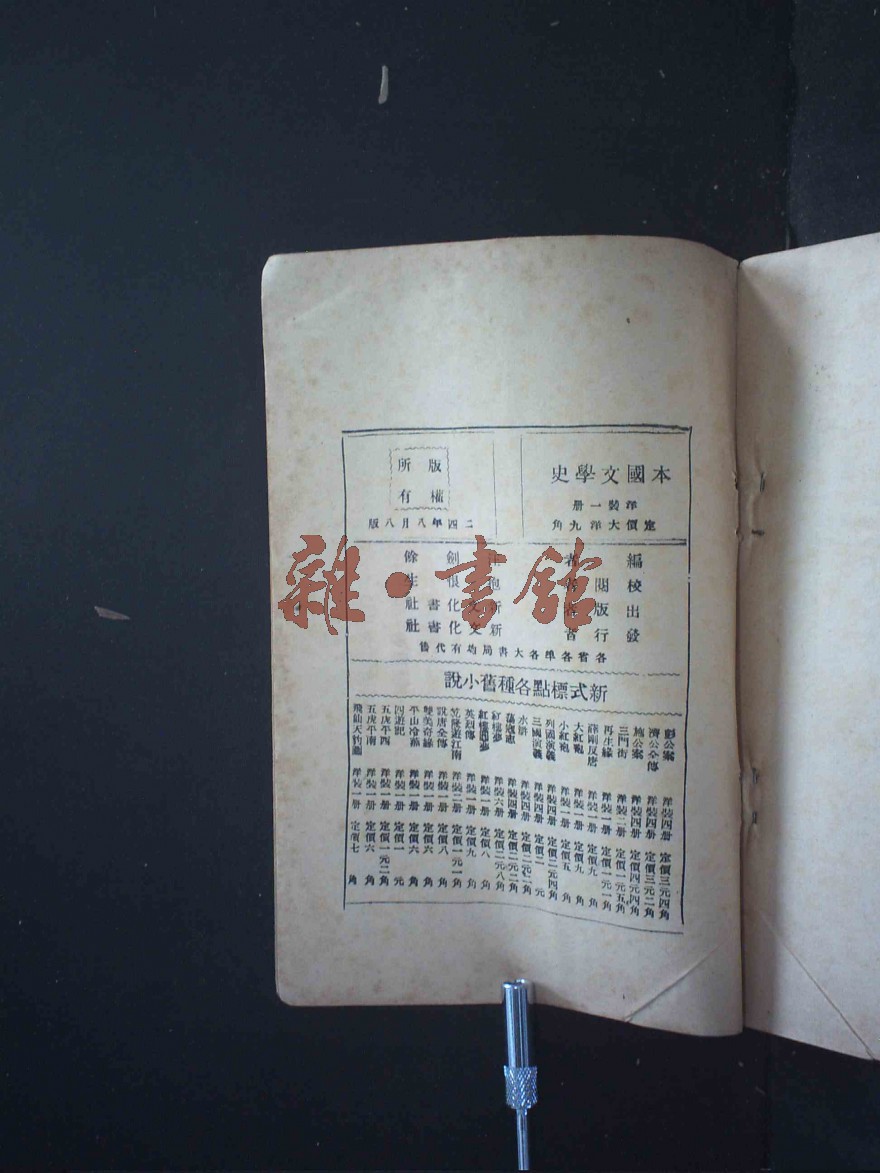 本國文學史
洋裝一册
定價大洋九角
版權所有
二四年八月八版
編者 劍餘
校閱者 恨生
出版者 新文化書社
發行者 新文化書社
各省各埠各大書局均有代售
雜·書館
新式標點各種舊小說
彭公案 洋裝四册 定價三元四角
濟公全傳 洋裝四册 定價三元二角
施公案 洋裝四册 定價四元四角
三門街 洋裝二册 定價一元五角
再生緣 洋裝一册 定價一元一角
薛剛反唐 洋裝一册 定價九角
大紅袍 洋裝一册 定價九角
小紅袍 洋裝一册 定價五角
列國演義 洋裝四册 定價二元四角
三國演義 洋裝四册 定價二元
水滸 洋裝四册 定價二元二角
蕩寇志 洋裝四册 定價二元二角
紅樓夢 洋裝六册 定價二元八角
紅樓圓夢 洋裝一册 定價八角
英烈傳 洋裝一册 定價九角
乾隆遊江南 洋裝二册 定價一元一角
說唐全傳 洋裝一册 定價八角
雙美奇緣 洋裝一册 定價六角
平山冷燕 洋裝一册 定價六角
四遊記 洋裝一册 定價一元
五虎平西 洋裝一册 定價一元二角
五虎平南 洋裝一册 定價六角
飛仙天豹圖 洋裝一册 定價七角